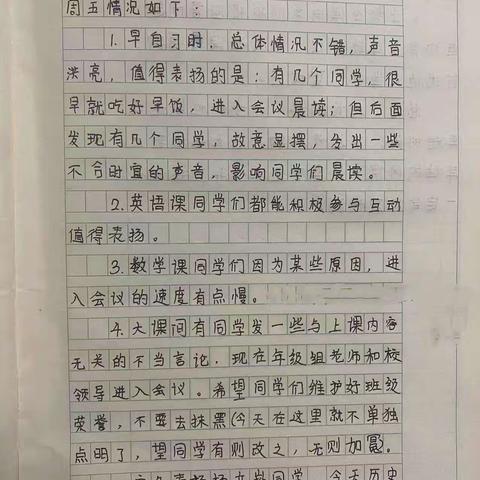 周五情况如下：
1.早自习时，总体情况不错，声音
洪亮，值得表扬的是：有几个同学，很
早就吃好早饭，进入会议晨读；但后面
发现有几个同学，故意显摆，发出一些
不合时宜的声音，影响同学们晨读。
2.英语课同学们都能积极参与互动
值得表扬。
3.数学课同学们因为某些原因，进
入会议的速度有点慢。
4.大课间有同学发一些与上课内容
无关的不当言论，现在年级组老师和校
领导进入会议。希望同学们维护好班级
荣誉，不要去抹黑（今天在这里就不单独
点明了，望同学有则改之，无则加冕。
同学，今天历史